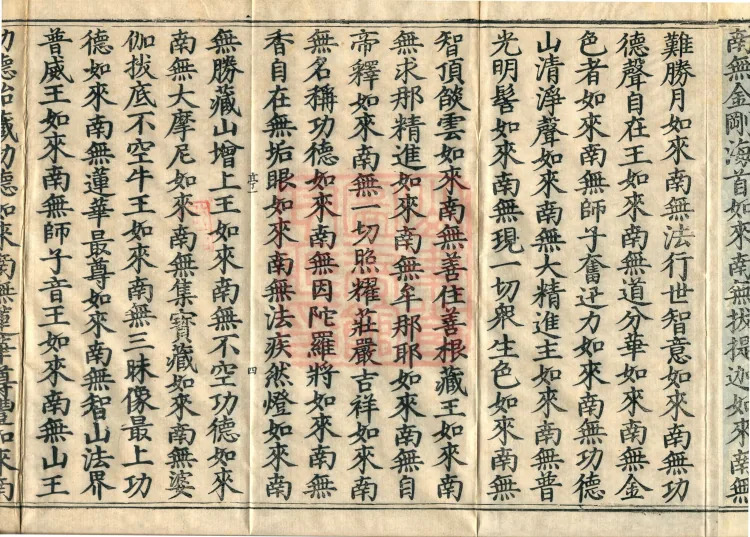 南無金剛海首如來南無拔提迦如來南無
難勝月如來南無法行世智意如來南無功
德聲自在王如來南無道分華如來南無金
色者如來南無師子奮迅力如來南無功德
山清淨聲如來南無大精進主如來南無普
光明髻如來南無現一切衆生色如來南無
智頂燄雲如來南無善住善根藏王如來南
無求那精進如來南無牟那耶如來南無自
帝釋如來南無一切照耀莊嚴吉祥如來南
無名稱功德如來南無因陀羅將如來南無
香自在無垢眼如來南無法疾然燈如來南
四
無勝藏山增上王如來南無不空功德如來
南無大摩尼如來南無集寶藏如來南無婆
伽拔底不空牛王如來南無三昧像最上功
德如來南無蓮華最尊如來南無智山法界
普威王如來南無師子音王如來南無山王
功德胎藏功德如來南無蓮華尊如來南